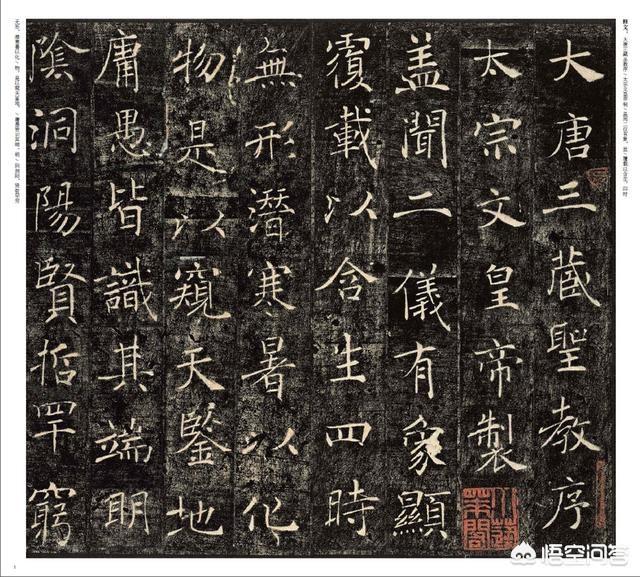 大唐三藏聖教序
太宗文皇帝製
盖聞二儀有象顯
覆載以含生四時
無形潛寒暑以化
物是以窺天鑒地
庸愚皆識其端明
陰洞陽賢哲罕窮
悟空问答